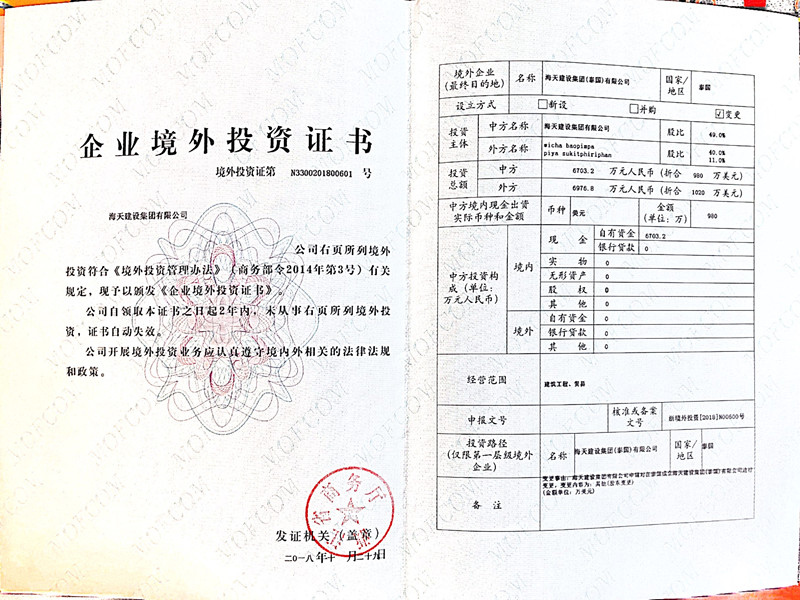 企业境外投资证书
境外投资证第 N3300201800601 号
海天建设集团有限公司
公司右页所列境外
投资符合《境外投资管理办法》（商务部令2014年第3号）有关
规定，现予以颁发《企业境外投资证书》。
公司自领取本证书之日起2年内，未从事右页所列境外投
资，证书自动失效。
公司开展境外投资业务应认真遵守境内外相关的法律法规
和政策。
省商务厅
发证机关（盖章）
二〇一八年十一月二十九日
境外企业
(最终目的地) 名称 海天建设集团(泰国)有限公司 国家/
地区 泰国
设立方式 □新设 □并购 ☑变更
投资
主体 中方名称 海天建设集团有限公司 股比 49.0%
外方名称 wicha baopimpa 股比 40.0%
piya sukitphiriphan 11.0%
投资
总额 中方 6703.2 万元人民币 (折合 980 万美元)
外方 6976.8 万元人民币 (折合 1020 万美元)
中方境内现金出资
实际币种和金额 币种 美元 金额
(单位：万) 980
中方投资构
成（单位：
万元人民币） 境内 现金 自有资金 6703.2
银行贷款 0
实物 0
无形资产 0
股权 0
其他 0
境外 自有资金 0
银行贷款 0
其他 0
经营范围 建筑工程、贸易
申报文号 核准或备案
文号 浙境外投资[2018]N00600号
投资路径
(仅限第一层级境外
企业) 名称 海天建设集团(泰国)有限公司 国家/
地区 泰国
备注 变更事由：海天建设集团有限公司申请对在泰国
变更，变更内容为：其他(股东变更)
(金额单位：万美元)
MOFCOM